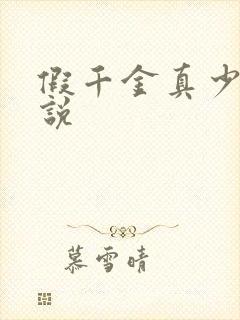 假千金真少
說
慕雪晴